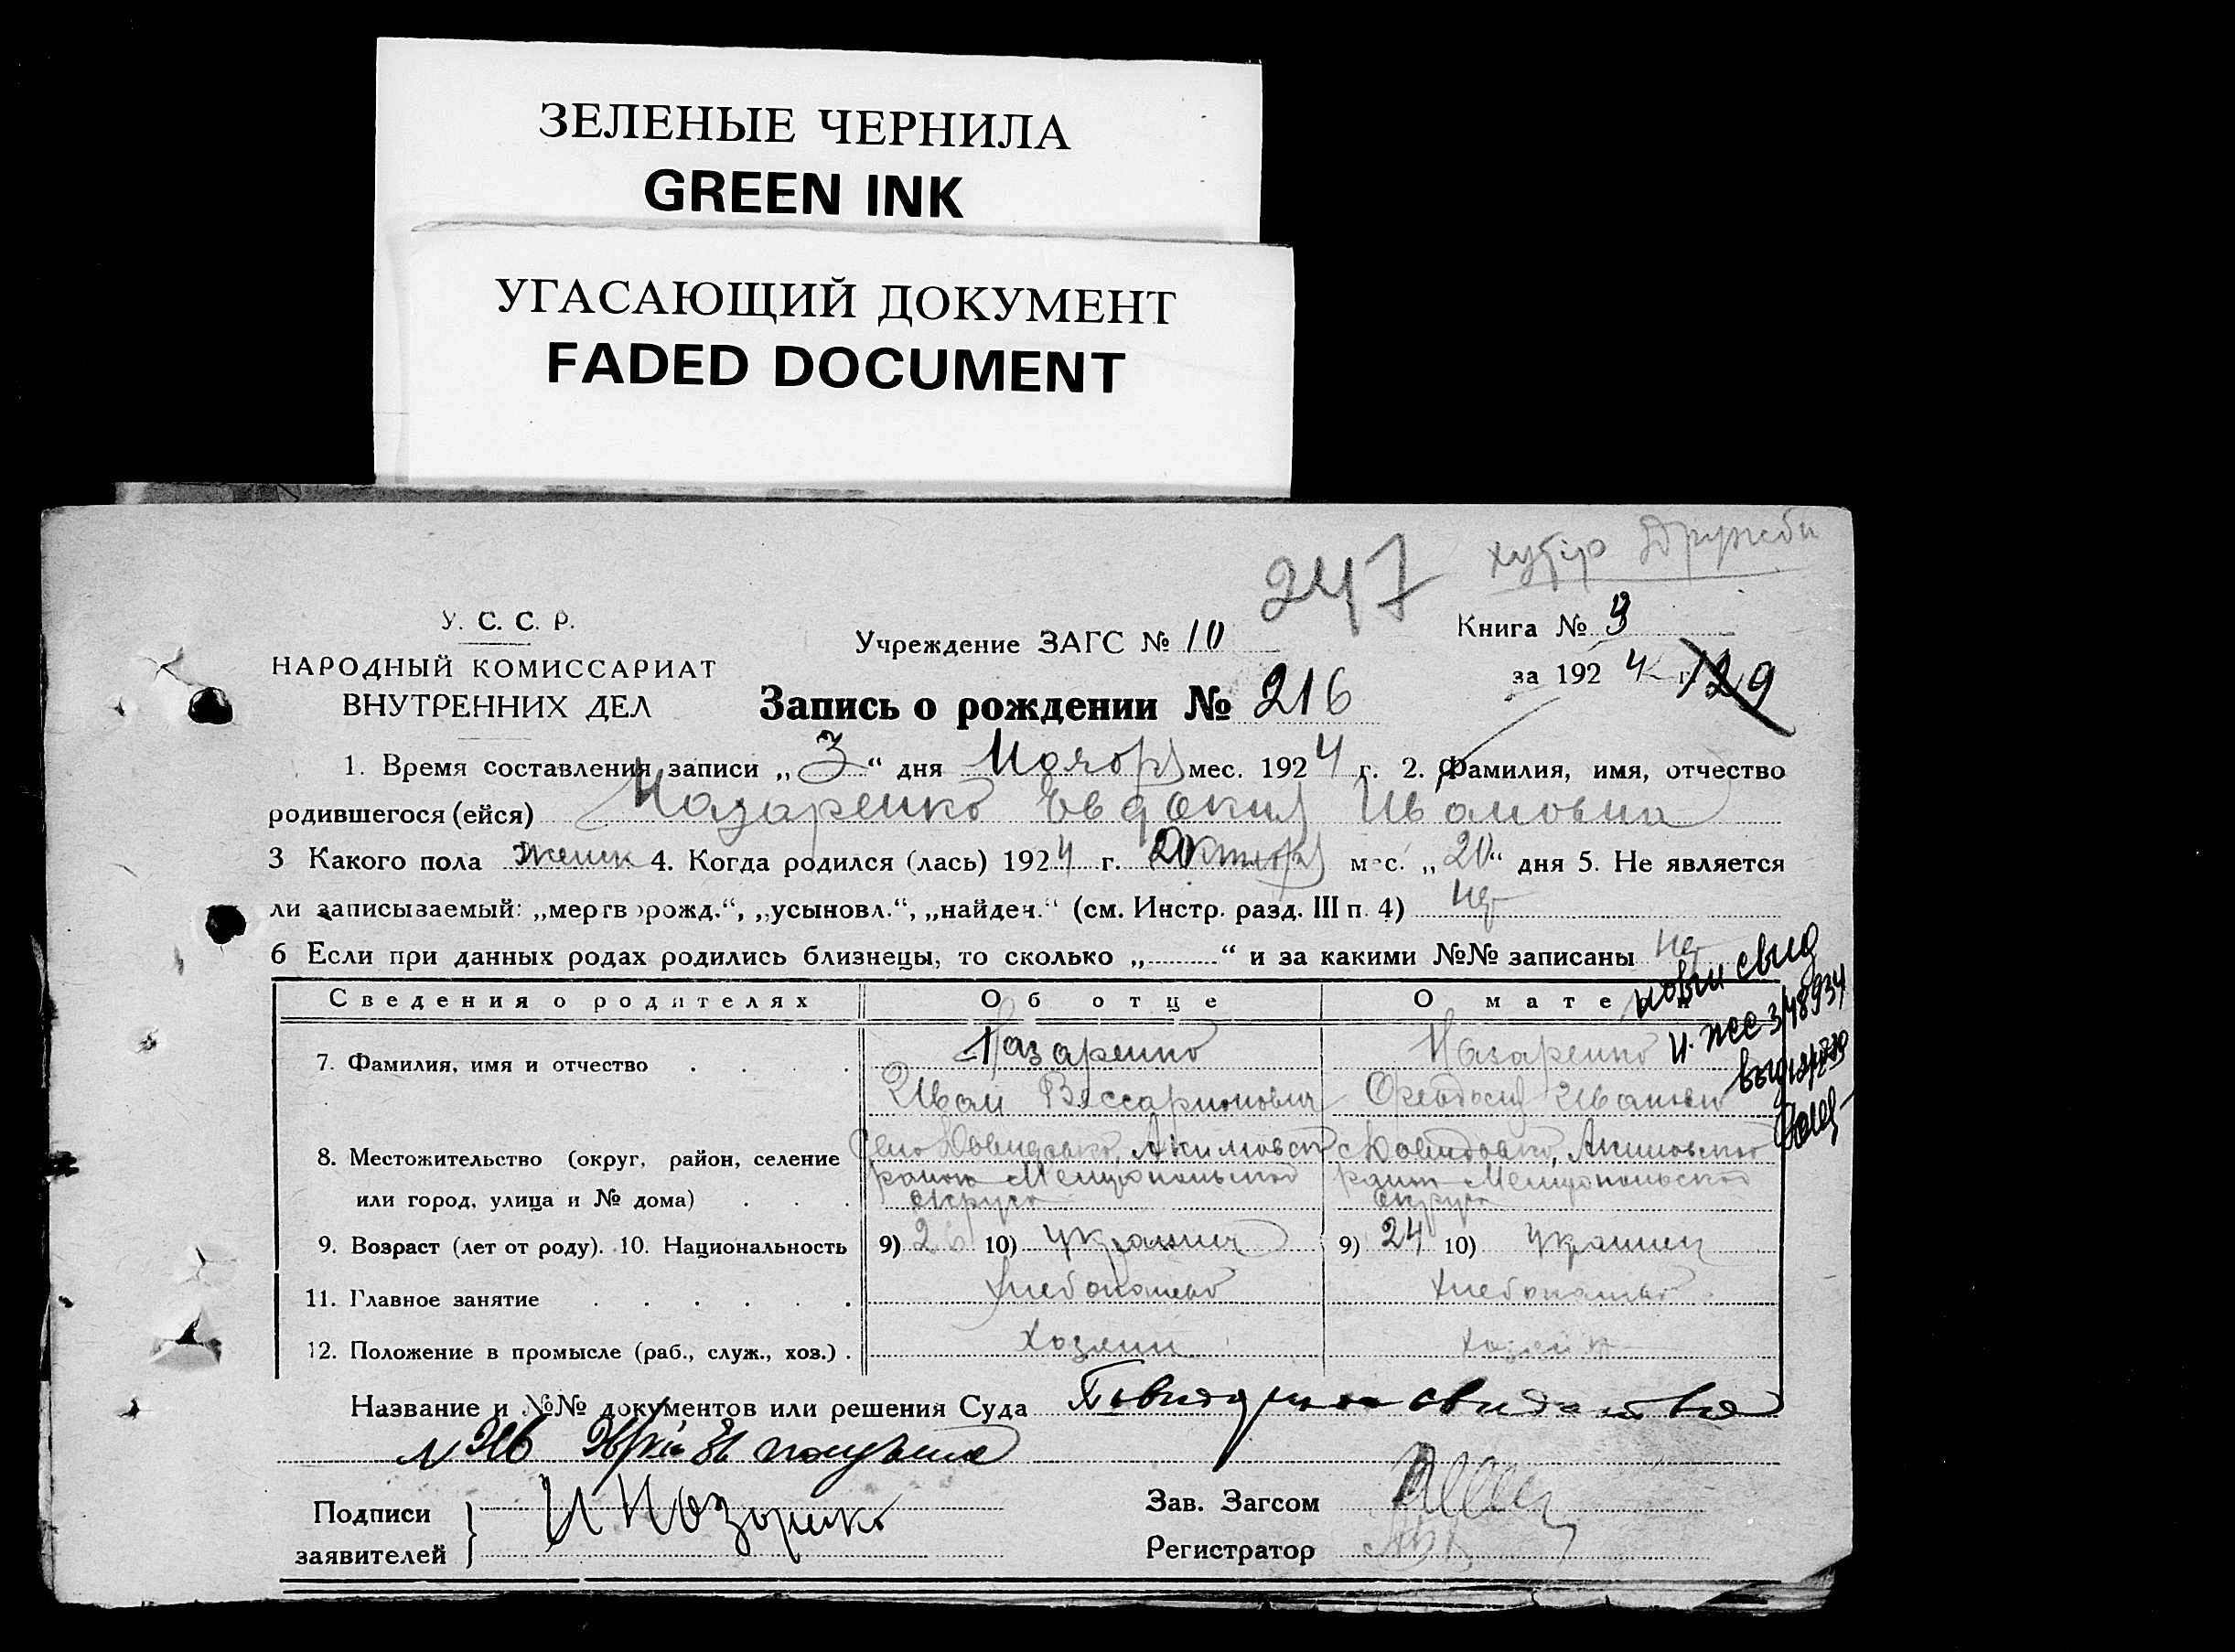 ЗЕЛЕНЫЕ ЧЕРНИЛА
GREEN INK
УГАСАЮЩИЙ ДОКУМЕНТ
FADED DOCUMENT
247 хутір Дружби
У. С. С. Р.
НАРОДНЫЙ КОМИССАРИАТ
ВНУТРЕННИХ ДЕЛ
Учреждение ЗАГС № 10
Книга № 3
за 1924 г. 129
Запись о рождении № 216
1. Время составления записи „3“ дня Ноября мес. 1924 г. 2. Фамилия, имя, отчество
родившегося (ейся) Назаренко Евдокия Ивановна
3 Какого пола женск 4. Когда родился (лась) 1924 г. Октября мес. „20“ дня 5. Не является
ли записываемый: „мертворожд.“, „усыновл.“, „найден.“ (см. Инстр. разд. III п. 4) нет
6 Если при данных родах родились близнецы, то сколько „ “ и за какими №№ записаны нет
Сведения о родителях Об отце О матери
7. Фамилия, имя и отчество Назаренко Назаренко
Иван Виссарионович Феодосия Иванов
8. Местожительство (округ, район, селение Село Давидовка, Акимовск с Давидовка, Акимовского
или город, улица и № дома) района Мелитопольской района Мелитопольской
округа округа
9. Возраст (лет от роду). 10. Национальность 9) 26 10) украинец 9) 24 10) украинец
11. Главное занятие хлебопашество хлебопашество
12. Положение в промысле (раб., служ., хоз.) хозяин хозяйка
Название и №№ документов или решения Суда свидетельство
№ 216 получил
Подписи
заявителей И Назаренко
Зав. Загсом
Регистратор